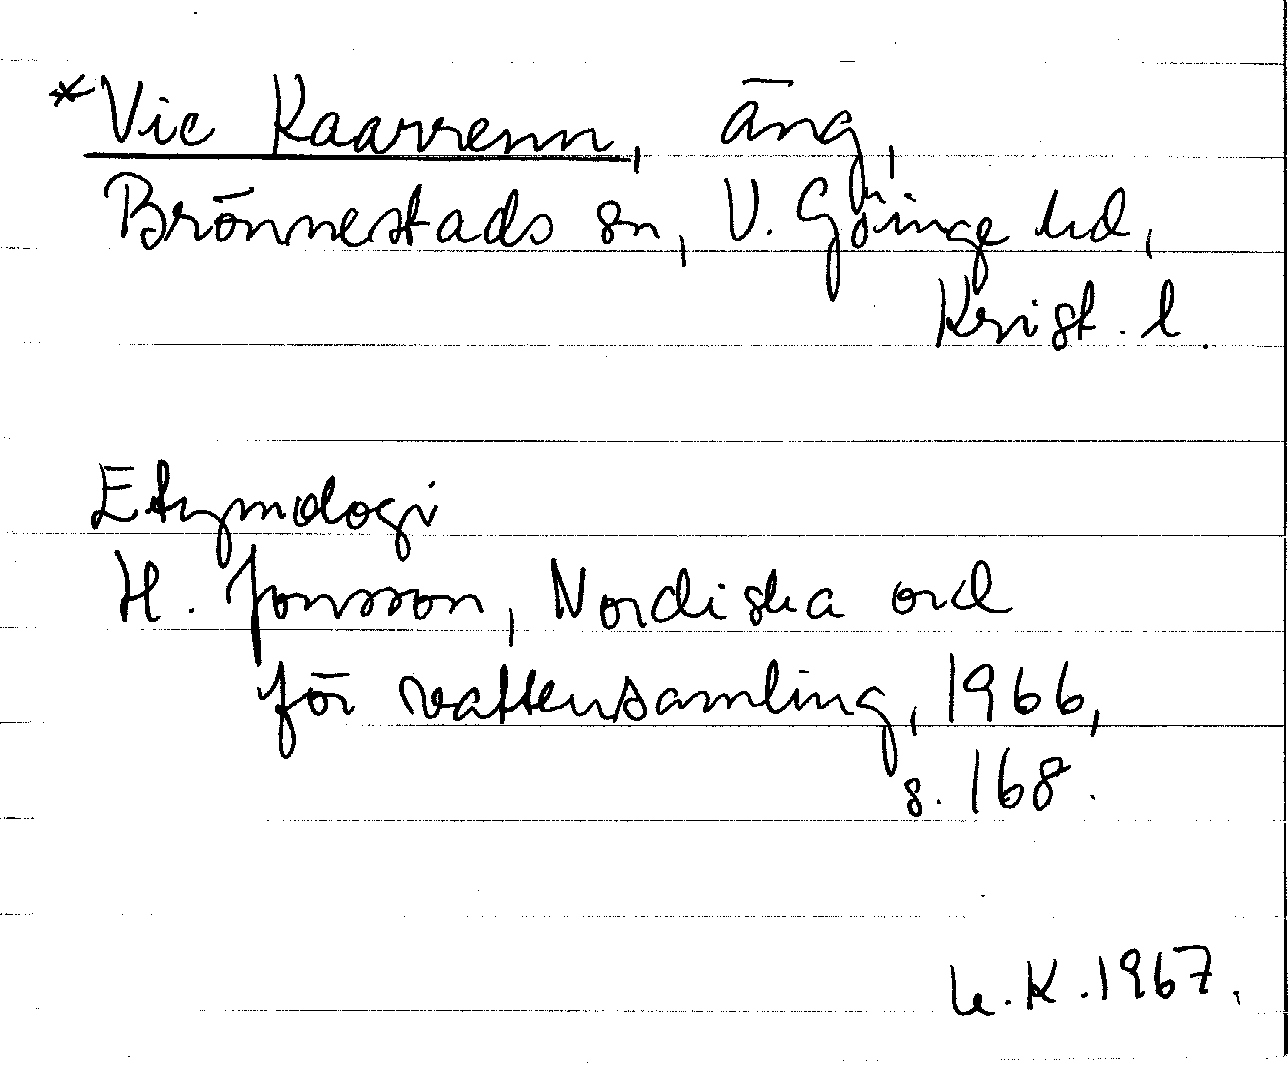 *Vie Kaarrenn, äng,
Brönnestads sn, V. Göinge hd,
Krist. l.
Etymologi
H. Jonsson, Nordiska ord
för vattensamling, 1966,
s. 168.
K. 1967.